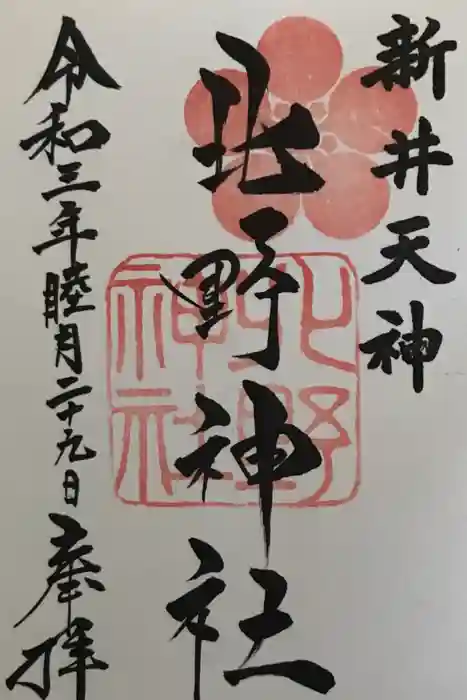 新井天神
北野神社
北野神社
令和三年睦月二十九日
奉拝